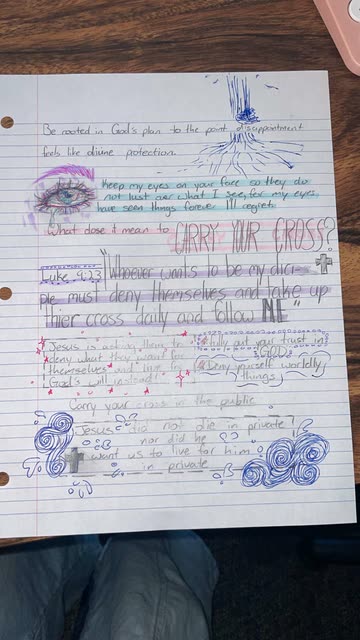 Be rooted in God's plan to the point disappointment
feels like divine protection.
Keep my eyes on your face so they do
not lust over what I see, for my eyes
have seen things forever I'll regret
What dose it mean to CARRY YOUR CROSS?
Luke 9:23 "Whoever wants to be my disci-
ple must deny themselves and take up
thier cross daily and follow ME"
Jesus is asking them to
deny what they want for
themselves and live for
God's will instead!
fully put your trust in
GOD
Deny yourself worldly
things
Carry your cross in the public
Jesus did not die in private?
nor did he
want us to live for him
in private